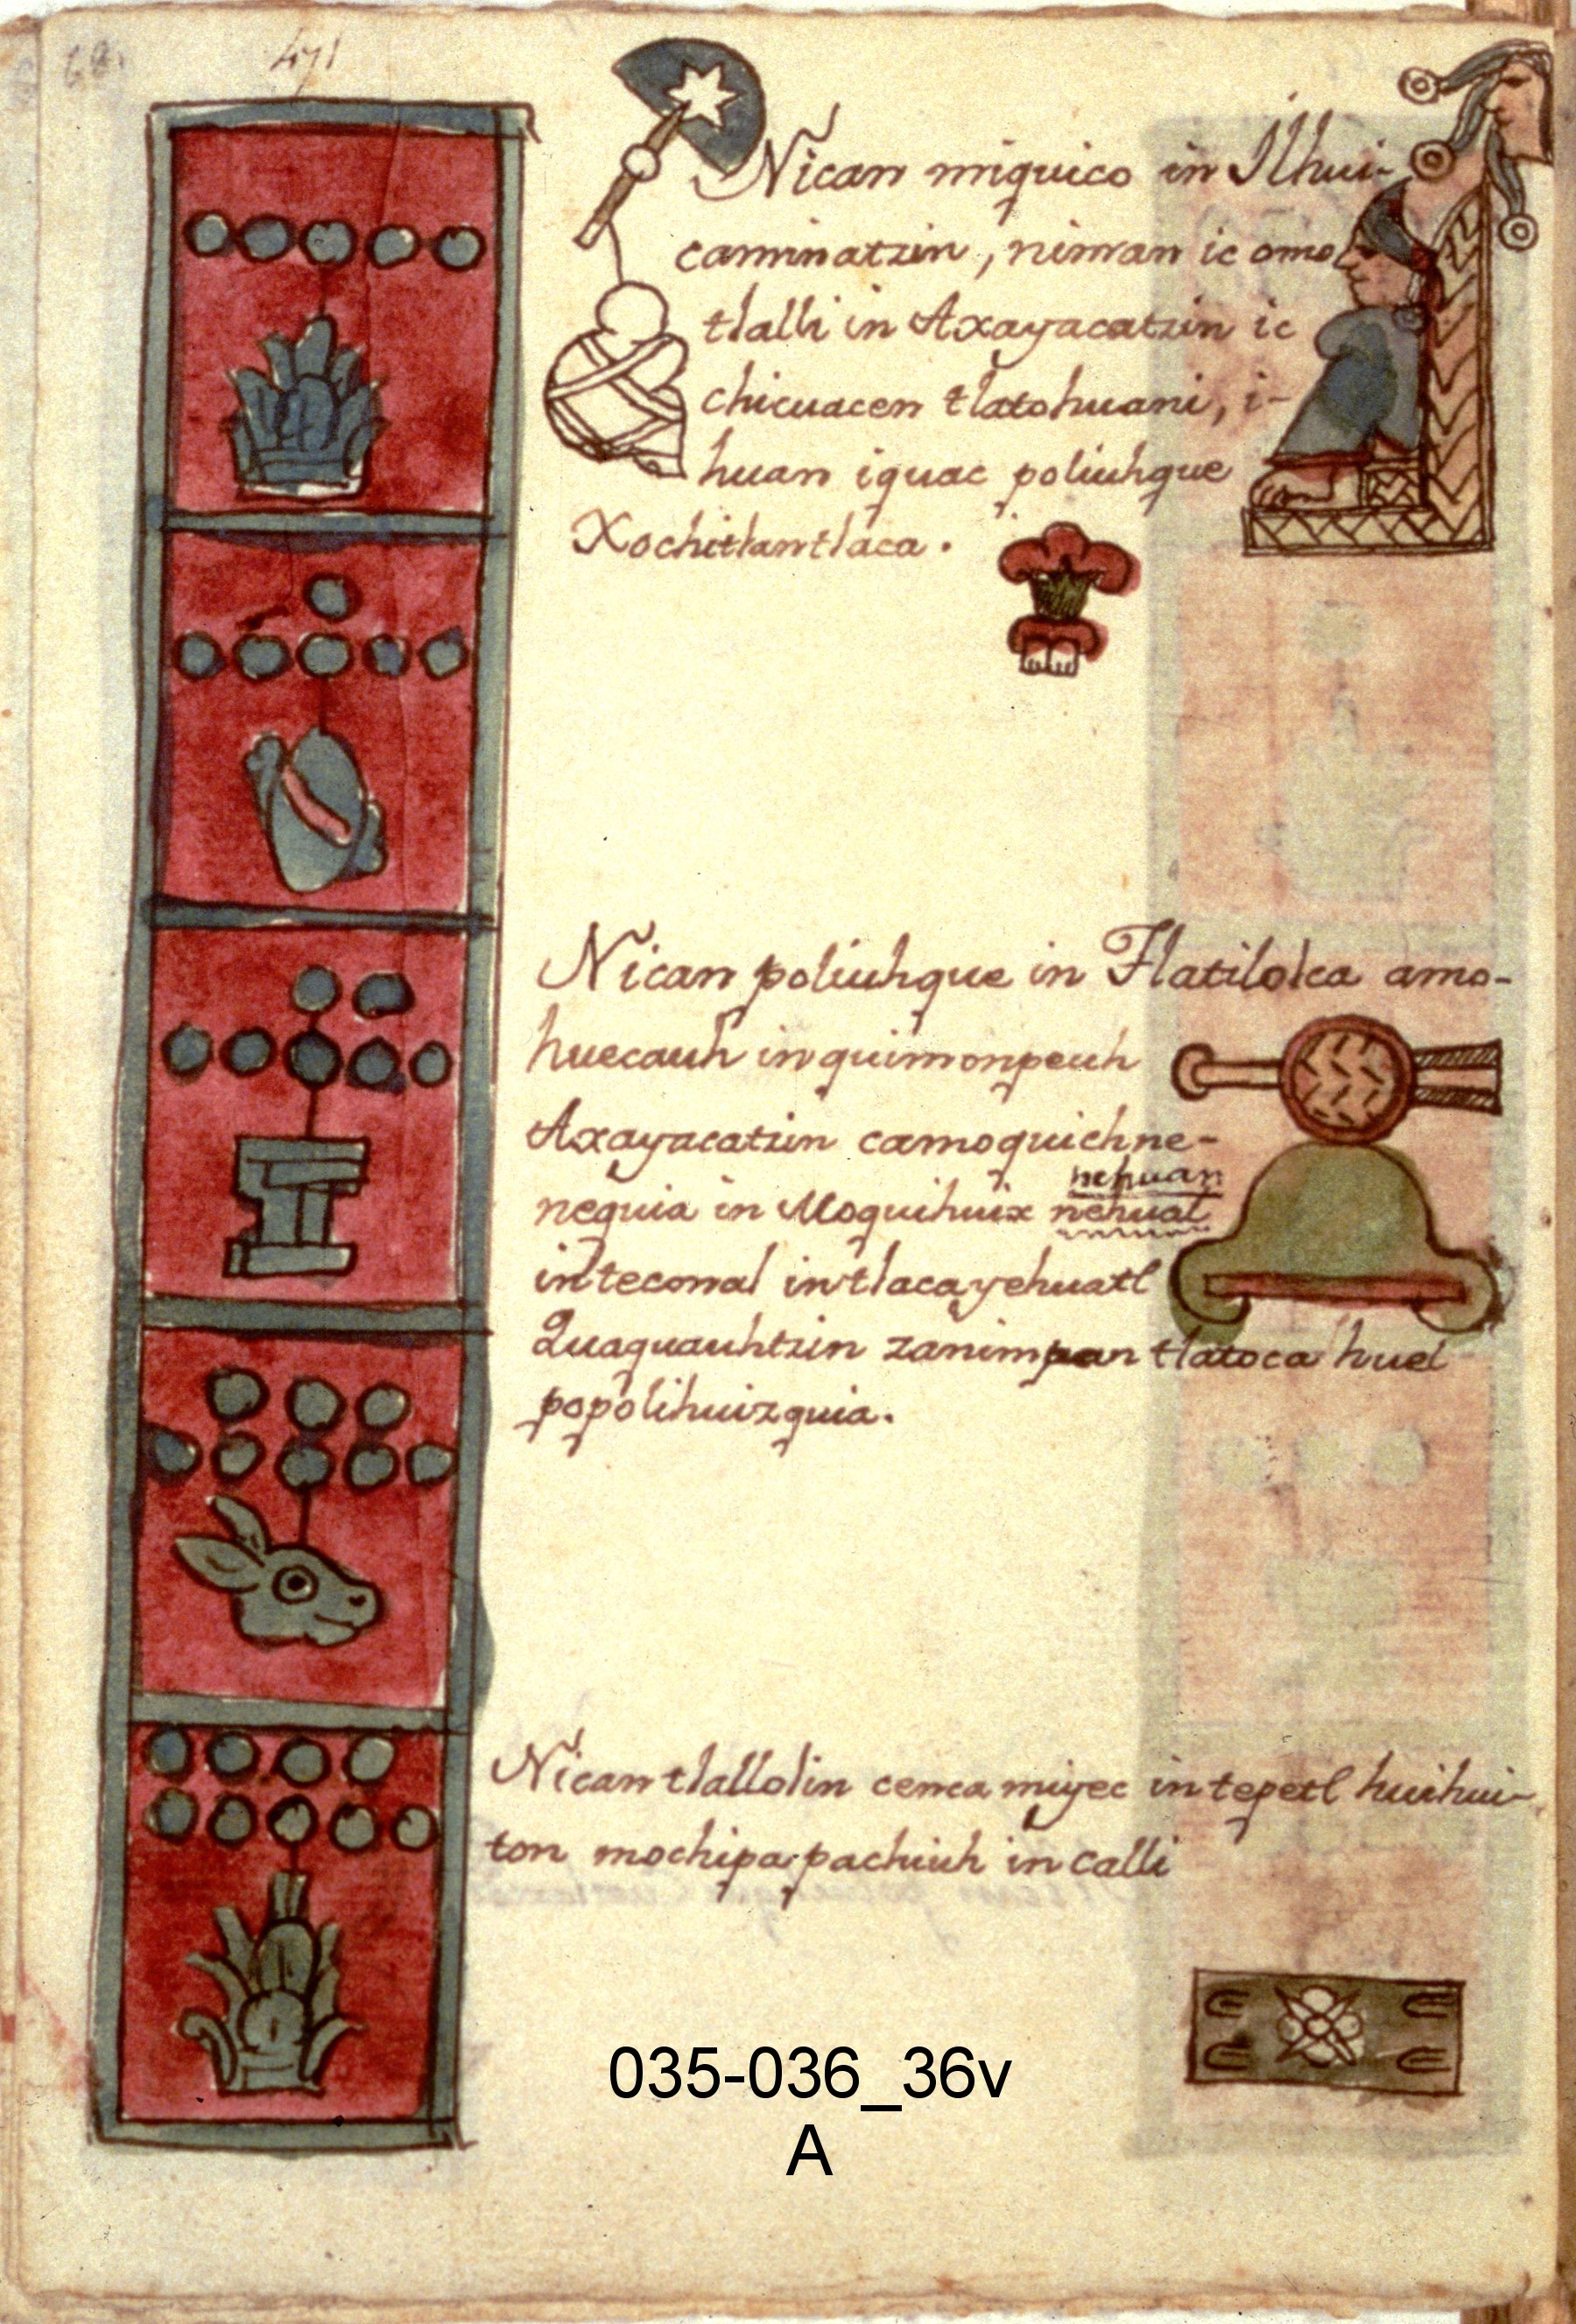 68.
471
Nican miquico in Ilhui-
caminatzin, niman ic omo
tlalli in Axayacatzin ic
chicuacen tlatohuani, i-
huan iquac poliuhque
Xochitlantlaca.
Nican poliuhque in Tlatilolca amo-
huecauh inquimonpeuh
Axayacatzin camoquichne-
nehuan
nequia in Moquihuix nehual
inteconal intlacayehuatl
Quaquauhtzin zanimpan tlatoca huel
popolihuizquia.
Nican tlallolin cenca miyec in tepetl huihui-
ton mochipa pachiuh in calli
035-036_36v
A